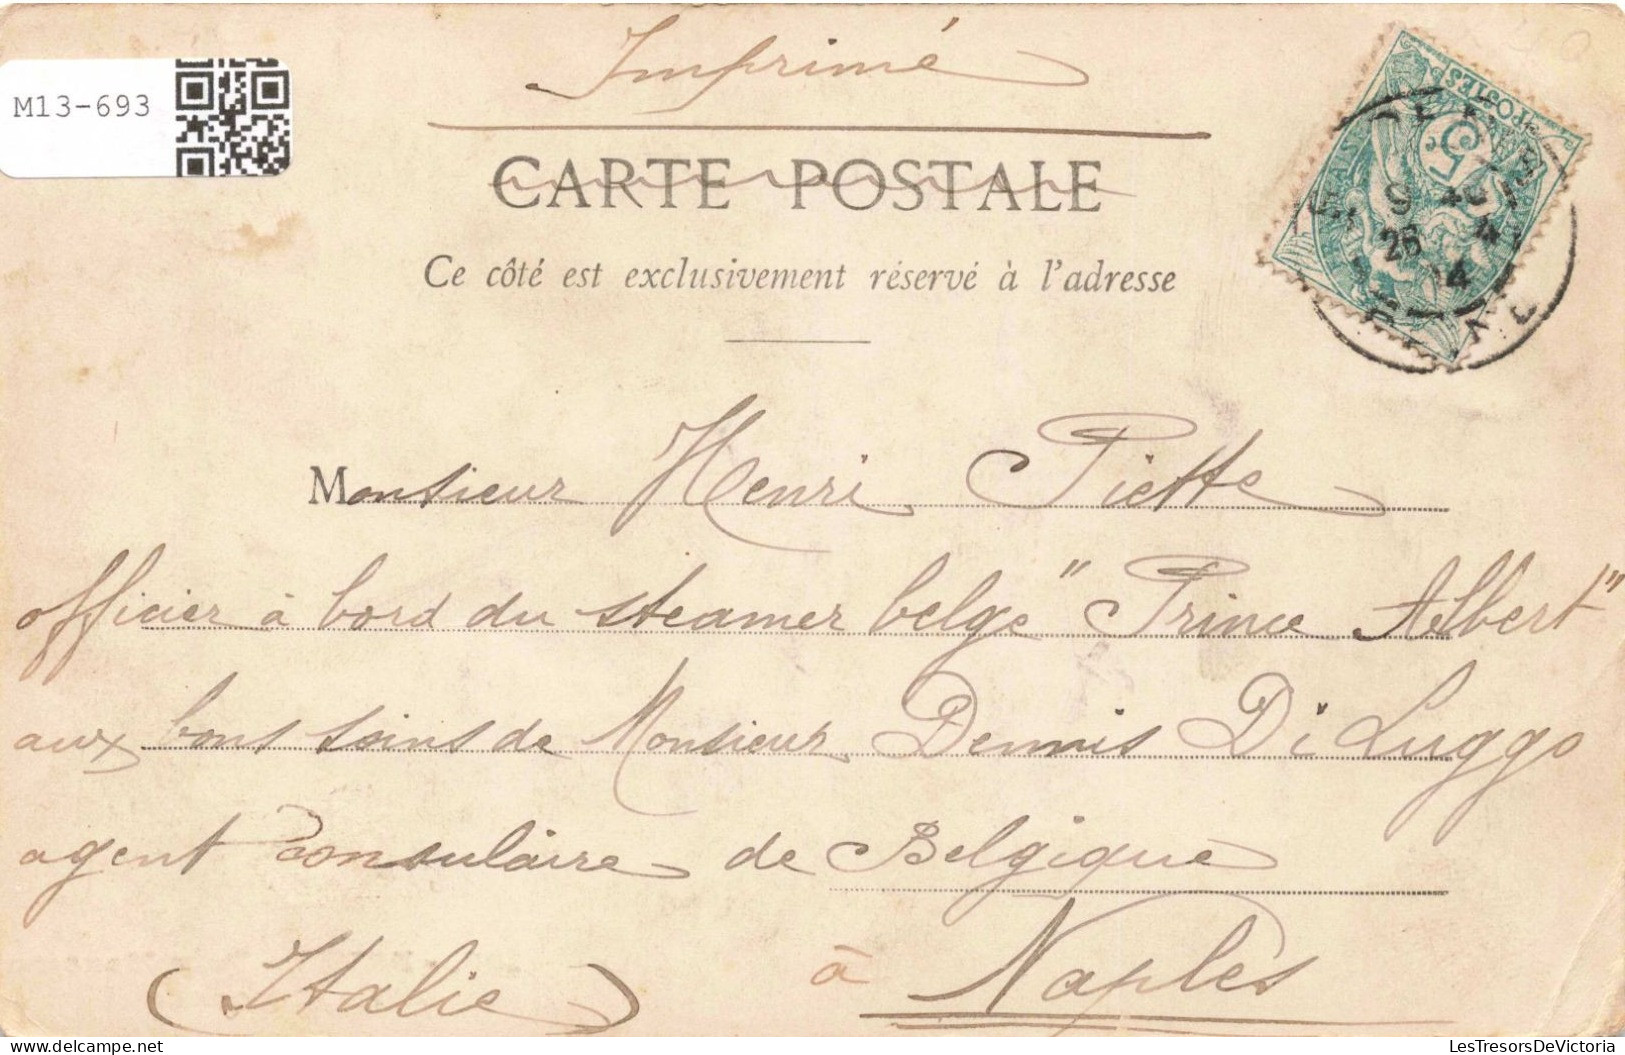 Imprimé
M13-693
CARTE POSTALE
POSTES
5c
Ce côté est exclusivement réservé à l'adresse
26 4
Monsieur Henri Piette
officier à bord du steamer belge "Prince Albert"
aux bons soins de Monsieur Dennis Di Luggo
agent Consulaire de Belgique
(Italie) à Naples
LesTresorsDeVictoria